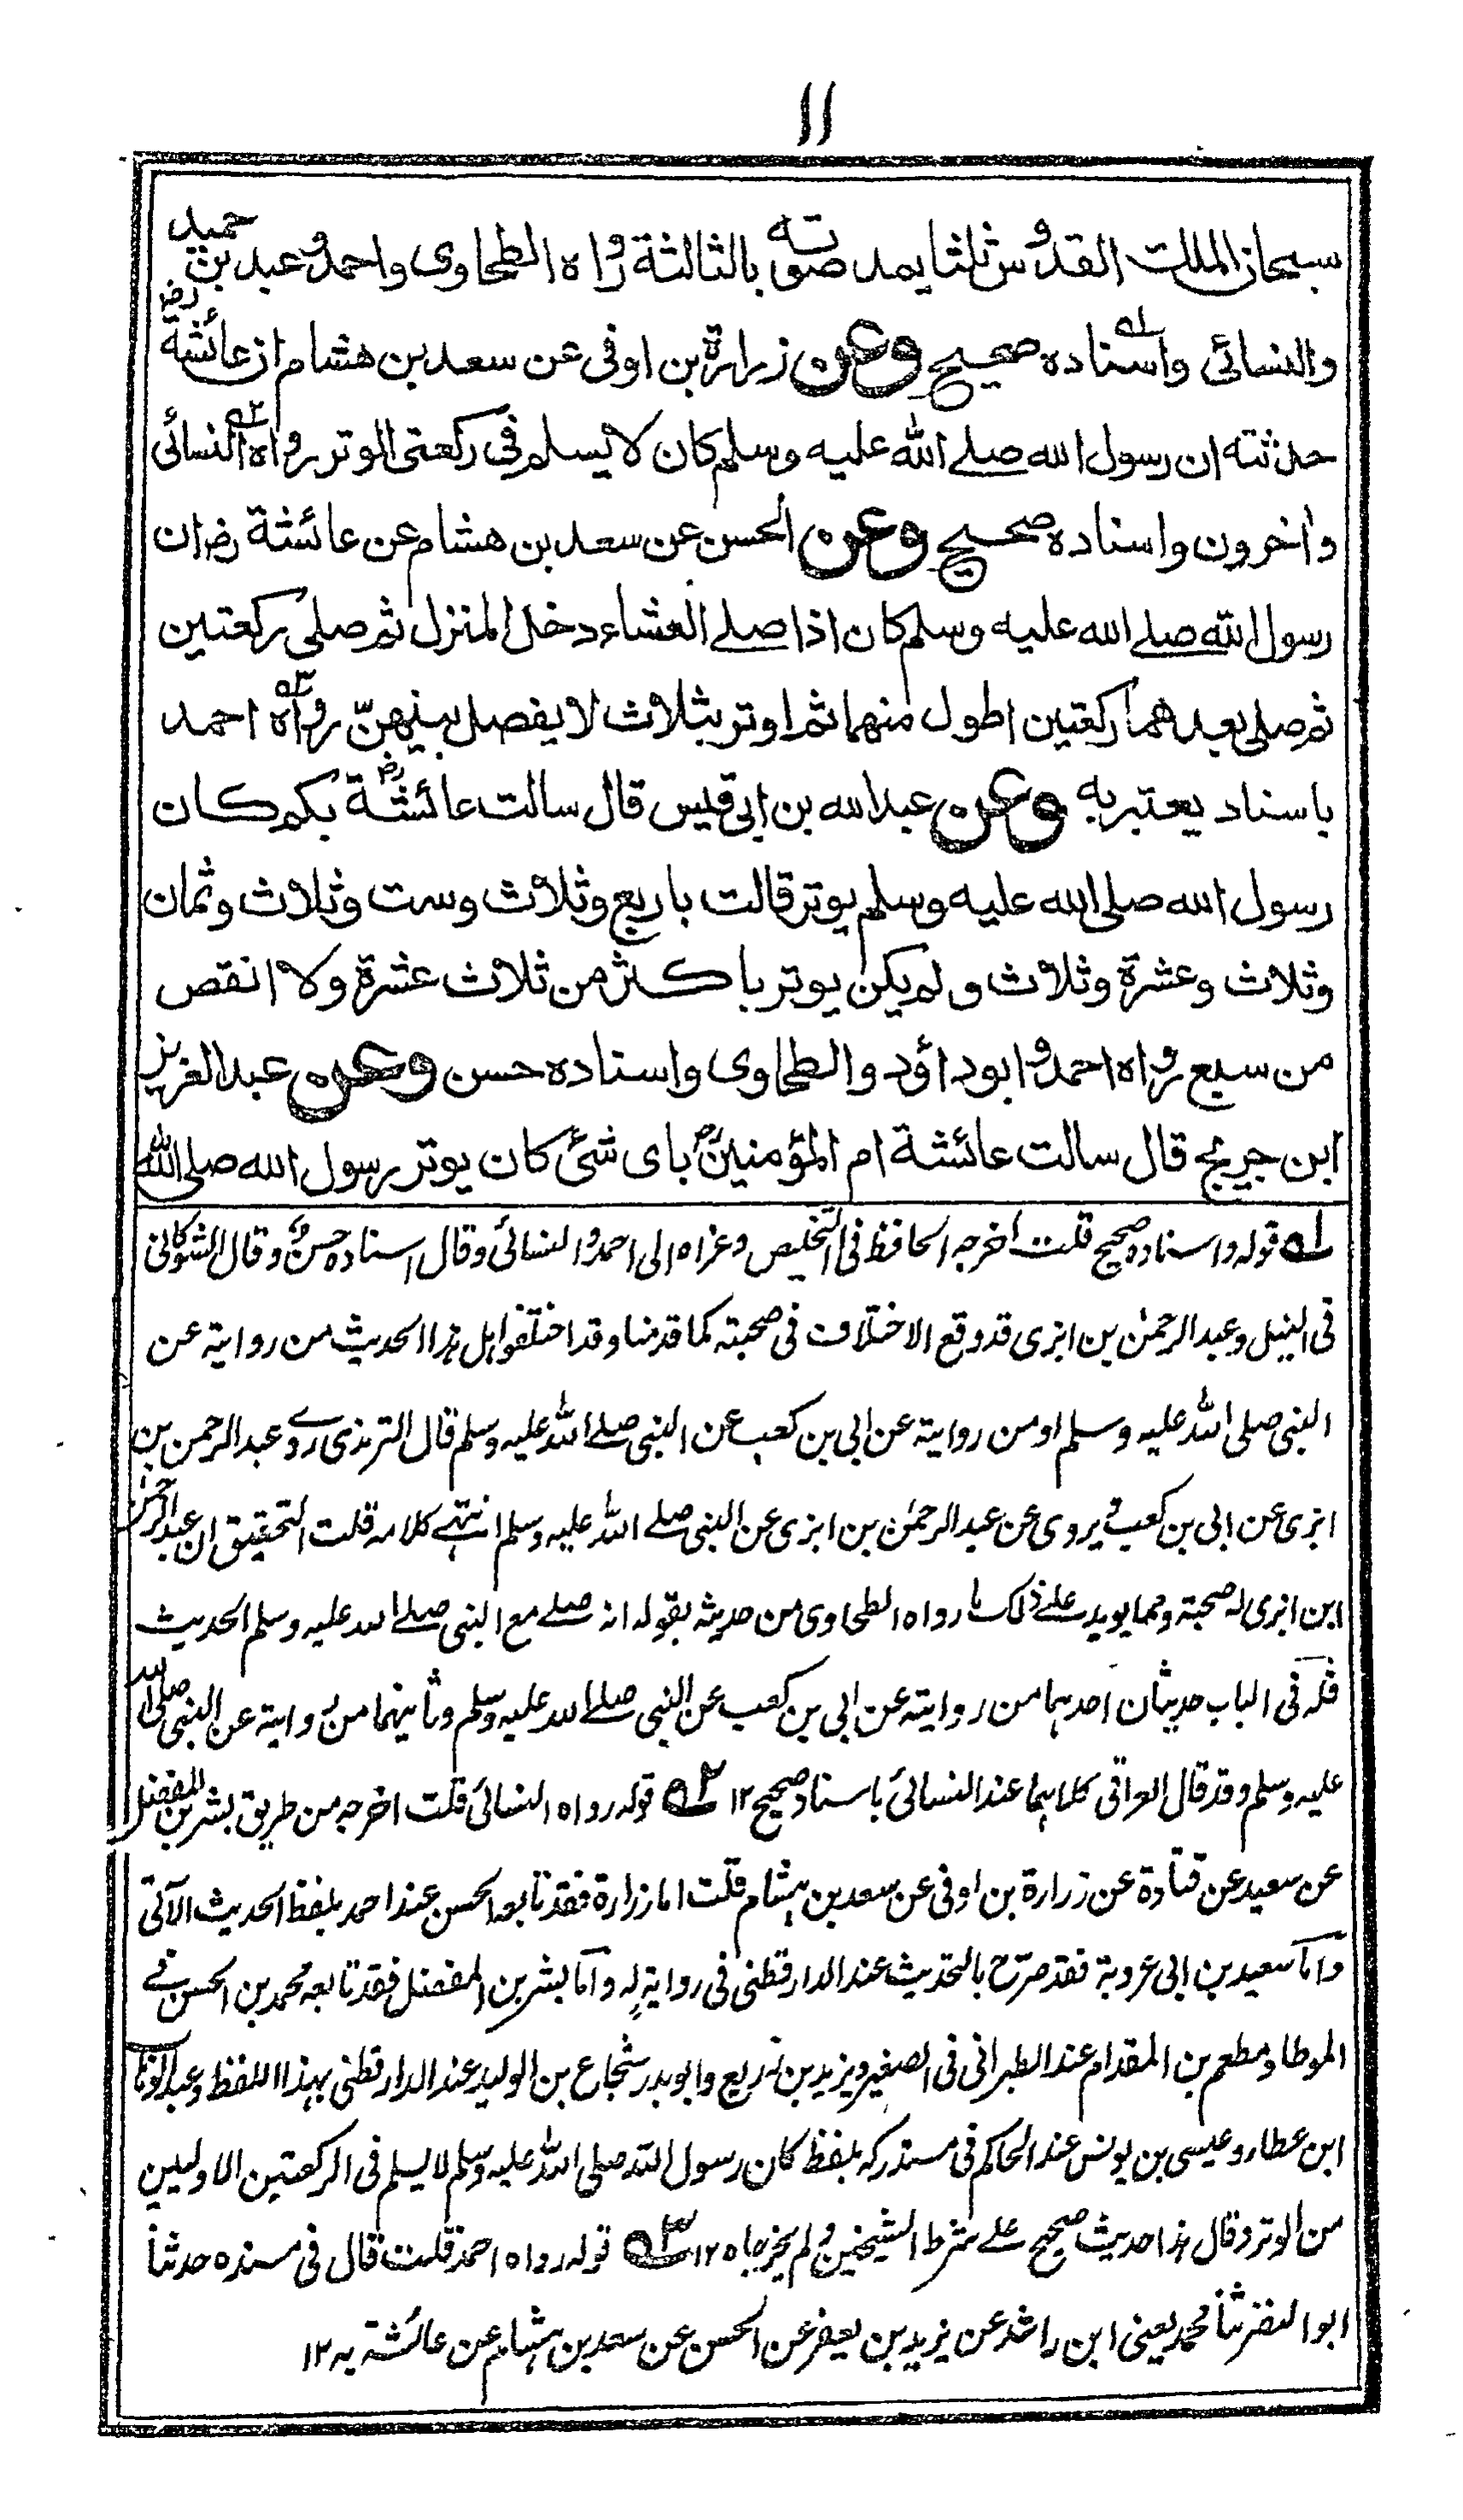 ١١
سبحان الملك القدوس ثلثا يمد صوته بالثالثة رواه الطحاوى واحمد وعبد بن حميد
والنسائى واسناده صحيح ١ه وعن زرارة بن اوفى عن سعد بن هشام ان عائشة رض
حدثته ان رسول الله صلے الله عليه وسلم كان لا يسلم فى ركعتى الوتر رواه ٢ه النسائى
واٰخرون واسناده صحيح وعن الحسن عن سعد بن هشام عن عائشة رض ان
رسول الله صلے الله عليه وسلم كان اذا صلے العشاء دخل المنزل ثم صلى ركعتين
ثم صلى بعدهما ركعتين اطول منهما ثم اوتر بثلاث لا يفصل بينهنّ رواه ٣ه احمد
باسناد يعتبر به وعن عبد الله بن ابى قيس قال سالت عائشة رض بكم كان
رسول الله صلى الله عليه وسلم يوتر قالت باربع وثلاث وست وثلاث وثمان
وثلاث وعشرة وثلاث ولم يكن يوتر باكثر من ثلاث عشرة ولا انقص
من سبع رواه احمد وابو داؤد والطحاوى واسناده حسن وعن عبد العزيز
ابن جريج قال سالت عائشة ام المؤمنين رض باى شئ كان يوتر رسول الله صلى الله
١ه قوله واسناده صحيح قلت اخرجه الحافظ فى التلخيص وعزاه الى احمد والنسائى وقال اسناده حسن وقال الشوكانى
فى النيل وعبد الرحمٰن بن ابزى قد وقع الاختلاف فى صحبته كما قدمنا وقد اختلفوا هل هذا الحديث من روايته عن
النبى صلى الله عليه وسلم او من روايته عن ابى بن كعب عن النبى صلے الله عليه وسلم قال الترمذى روے عبد الرحمن بن
ابزى عن ابى بن كعب ويروى عن عبد الرحمٰن بن ابزى عن النبى صلے الله عليه وسلم انتهے كلامه قلت التحقيق ان عبد الرحمٰن
ابن ابزى له صحبة ومما يويد علے ذلك ما رواه الطحاوى من حديثه بقوله انه صلے مع النبى صلے الله عليه وسلم الحديث
فله فى الباب حديثان احدهما من روايته عن ابى بن كعب عن النبى صلے الله عليه وسلم وثانيهما من روايته عن النبى صلى الله
عليه وسلم وقد قال العراقى كلاهما عند النسائى باسناد صحيح ١٢ ٢ه قوله رواه النسائى قلت اخرجه من طريق بشر بن المفضل
عن سعيد عن قتادة عن زرارة بن اوفى عن سعد بن هشام قلت اما زرارة فقد تابعه الحسن عند احمد بلفظ الحديث الآتى
وآما سعيد بن ابى عروبة فقد صرّح بالتحديث عند الدارقطنى فى رواية له وآما بشر بن المفضل فقد تابعه محمد بن الحسن فے
الموطا ومطعم بن المقدام عند الطبرانى فى الصغير ويزيد بن زريع وابو بدر شجاع بن الوليد عند الدارقطنى بهذا اللفظ وعبد الوهاب
ابن عطاء وعيسى بن يونس عند الحاكم فى مستدركه بلفظ كان رسول الله صلى الله عليه وسلم لا يسلم فى الركعتين الاوليين
من الوتر وقال هذا حديث صحيح علے شرط الشيخين ولم يخرجاه ١٢ ٣ه قوله رواه احمد قلت قال فى مسنده حدثنا
ابو النضر ثنا محمد يعنى ابن راشد عن يزيد بن يعفر عن الحسن عن سعد بن هشام عن عائشة به ١٢